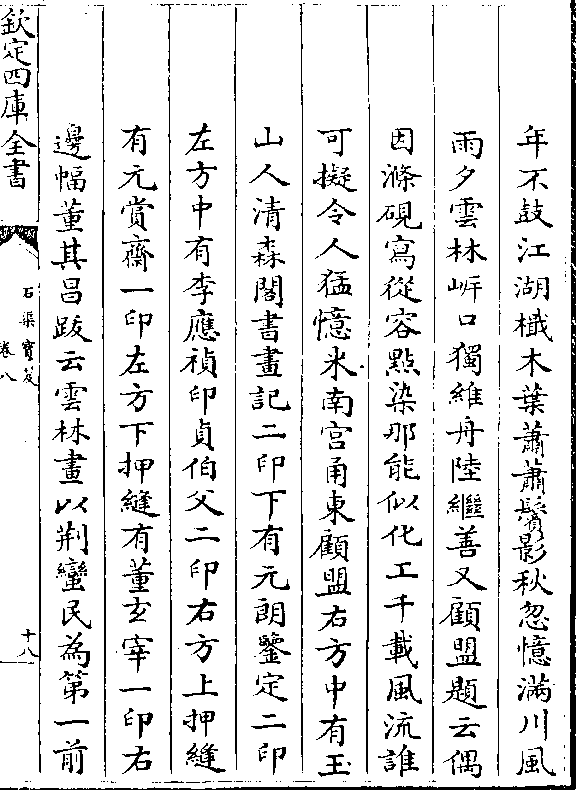 年不鼓江湖檝木葉蕭蕭鬢影秋忽憶滿川風
雨夕雲林㟁口獨維舟陸繼善又顧盟題云偶
因滌硯寫從容㸃染那能似化工千載風流誰
可擬令人猛憶米南宫甬東顧盟右方中有玉
山人清森閣書畫記二印下有元朗鑒定二印
左方中有李應禎印貞伯父二印右方上押縫
有元賞齋一印左方下押縫有董玄宰一印右
邊幅董其昌跋云雲林畫以荆蠻民為第一前
欽定四庫全書
石渠寳笈
卷八
十八